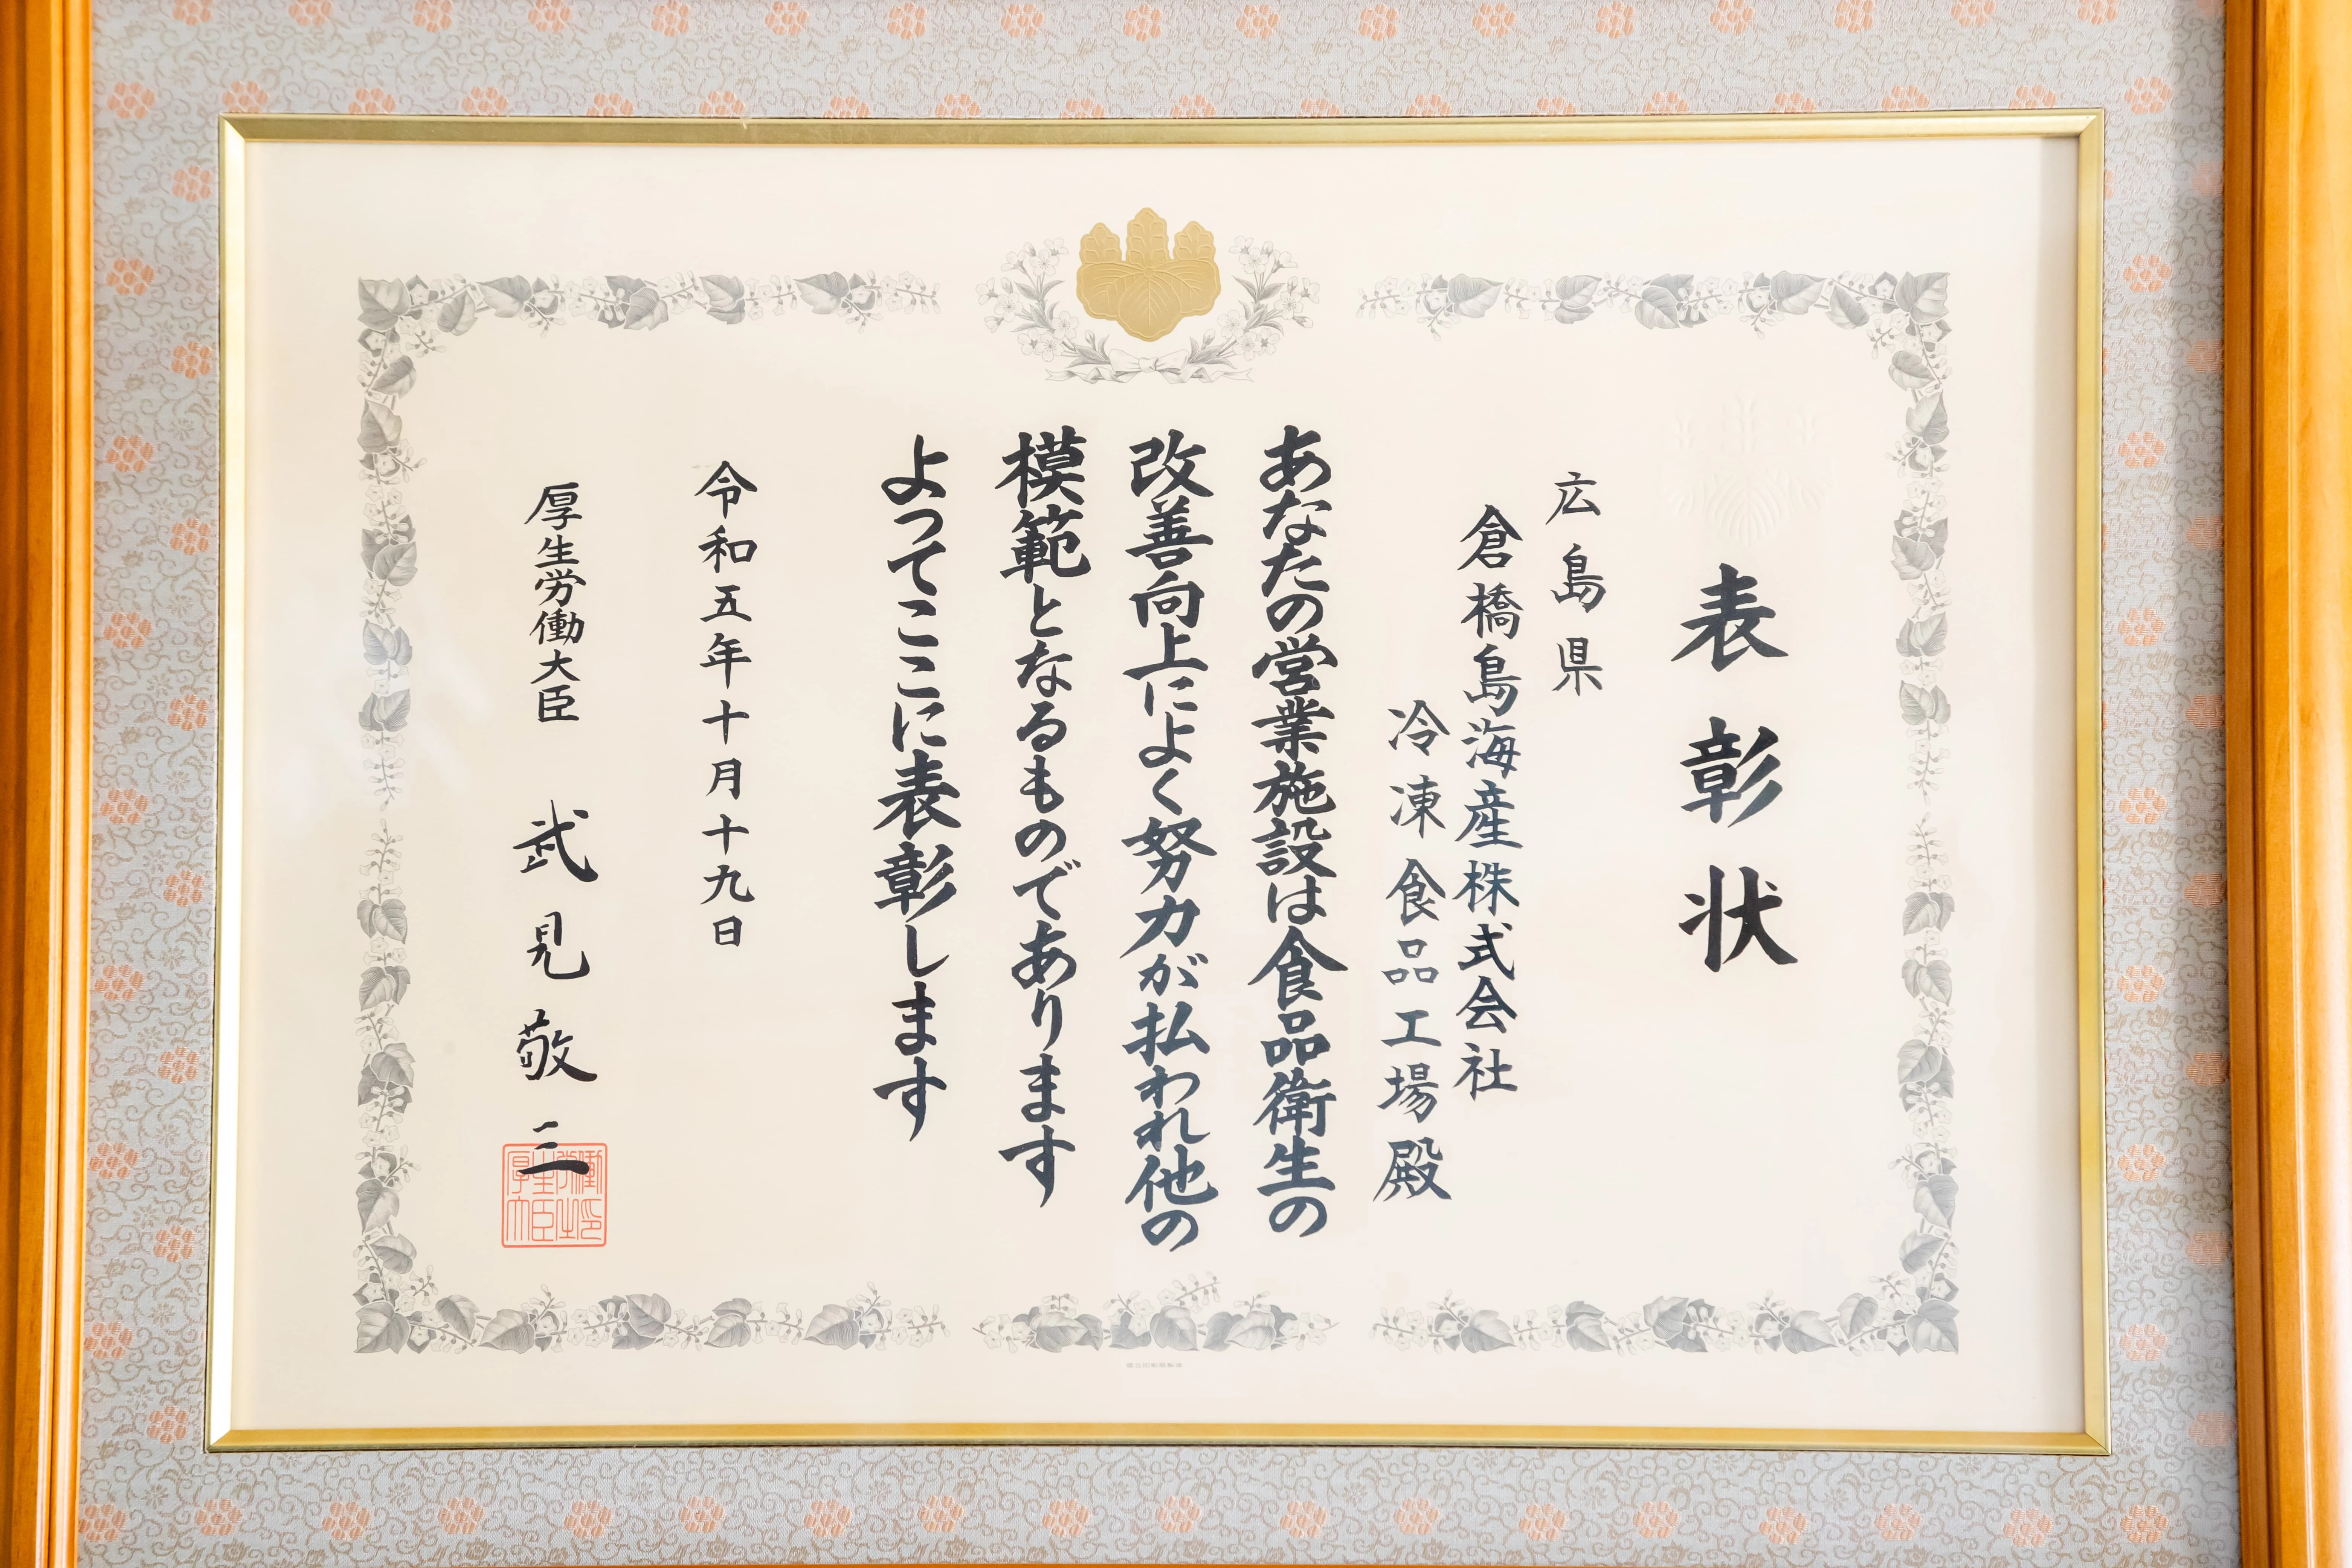 表彰状
広島県
倉橋島海産株式会社
冷凍食品工場殿
あなたの営業施設は食品衛生の
改善向上によく努力が払われ他の
模範となるものであります
よってここに表彰します
令和五年十月十九日
厚生労働大臣 武見敬三